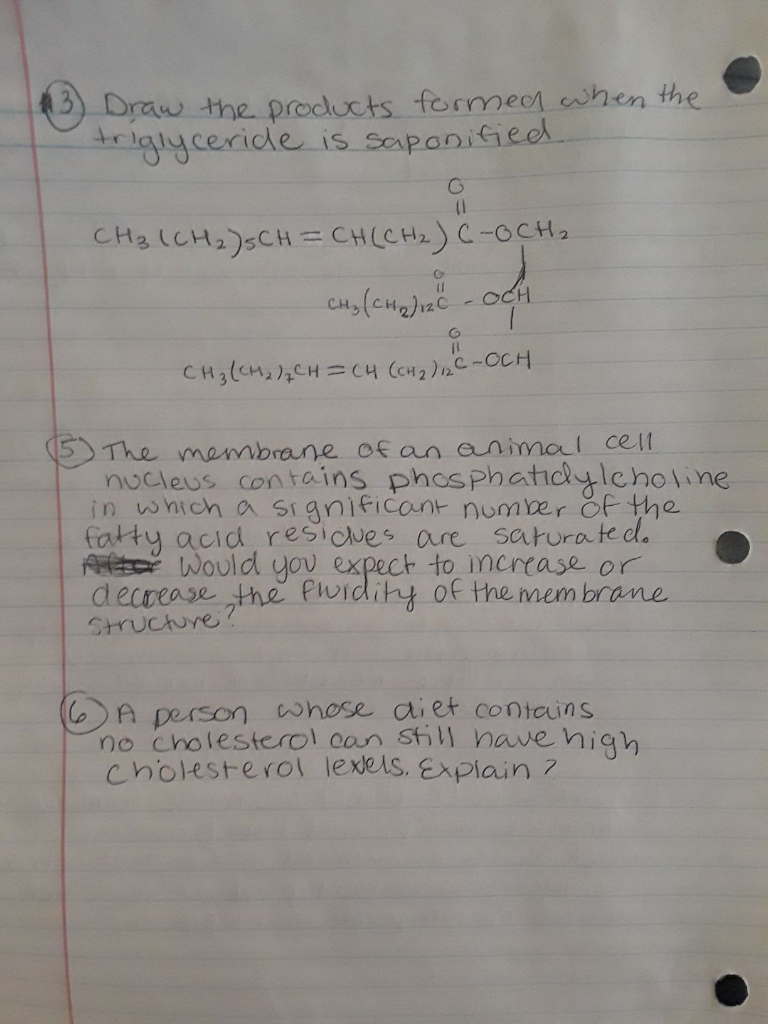 3) Draw the products formed when the
triglyceride is saponified
O
||
CH3(CH2)5CH = CH(CH2) C-OCH2
O
||
CH3(CH2)12C - OCH
O
||
CH3(CH2)7CH = CH (CH2)12C-OCH
5) The membrane of an animal cell
nucleus contains phosphatidylcholine
in which a significant number of the
fatty acid residues are saturated.
Would you expect to increase or
decrease the fluidity of the membrane
structure?
6) A person whose diet contains
no cholesterol can still have high
cholesterol levels. Explain?